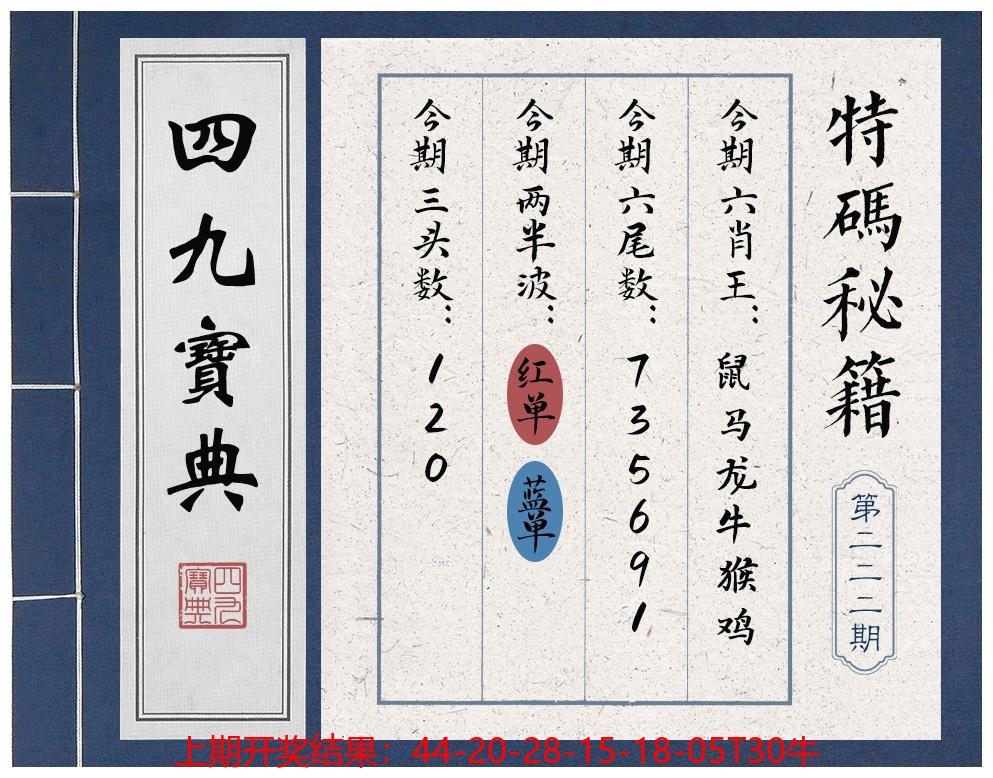 特碼秘籍
第二二二期
今期六肖王：鼠马龙牛猴鸡
今期六尾数：735691
今期两半波：红单蓝单
今期三头数：120
四九寶典
四九寶典
上期开奖结果：44-20-28-15-18-05T30牛